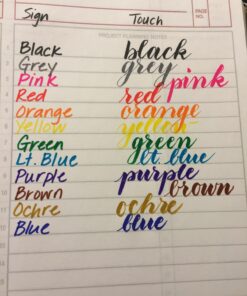 Sign Touch
PAGE NO.
PROJECT PLANNING NOTES
1 Black black
2 Grey grey
3 Pink pink
4 Red red
5 Orange orange
6 Yellow yellow
7 Green green
8 Lt. Blue lt. blue
9 Purple purple
10 Brown brown
11 Ochre ochre
12 Blue blue